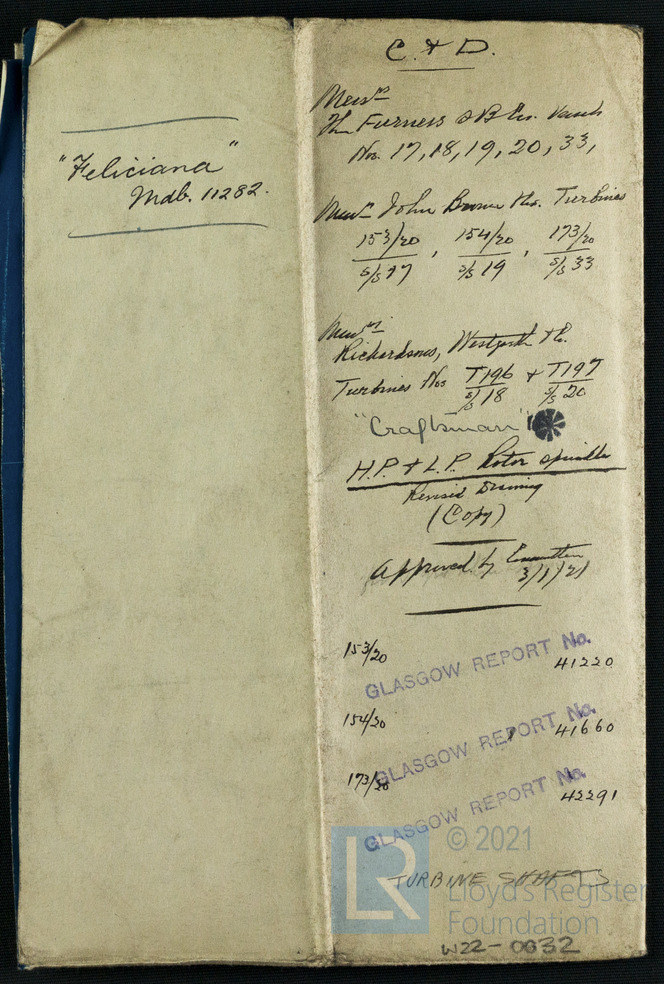 "Feliciana"
Mdb. 11282.
C. & D.
Messrs
Furness S B Co.
Nos. 17, 18, 19, 20, 33,
Messrs John Brown & Co. Turbines
153/20, 154/20, 173/20
S/S 17 S/S 19 S/S 33
Messrs
Richardsons, Westgarth & Co.
Turbines Nos T196 & T197
S/S 18 S/S 20
"Craftsman"
H.P. & L.P. Rotor spindle
Revised Drawing
(Copy)
Approved by Committee
3/1/21
153/20
GLASGOW REPORT No. 41220
154/20
GLASGOW REPORT No. 41660
173/20
GLASGOW REPORT No. 42291
© 2021
LR
TURBINE SHAFTS
Lloyd's Register
Foundation
W22-0032